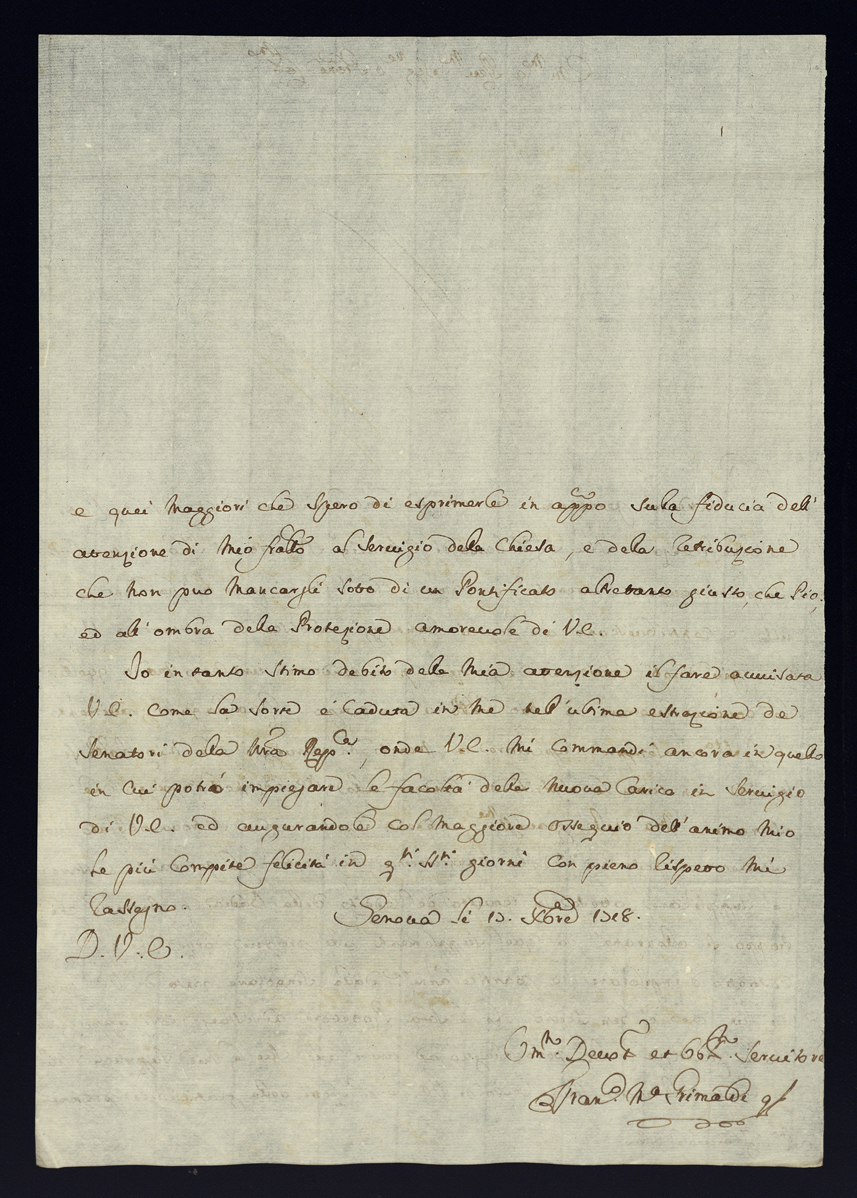 e quei Maggiori che spero di esprimerle in appo sula fiducia dell'
attenzione di Mio frallo al servigio della Chiesa, e della retribuzione
che non può Mancargli sotto di un Pontificato altretanto giusto, che Pio,
ed all'ombra della Protezione amorevole di V.E.
Io intanto stimo debito della Mia attenzione il fare avvisata
V.E. come la sorte è caduta in Me nell'ultima estrazione de
Senatori della Nra Repca, onde V.E. Mi commandi ancora in quello
in cui potrà impiegare le facoltà della Nuova Carica in servigio
di V.E. ed augurandole col Maggiore ossequio dell'animo Mio
le più compite felicità in qti Sti giorni con pieno rispetto Mi
rassegno.
Genova li Xbre
D. V. E.
Devot et Servitore
Franco Ma Grimaldi